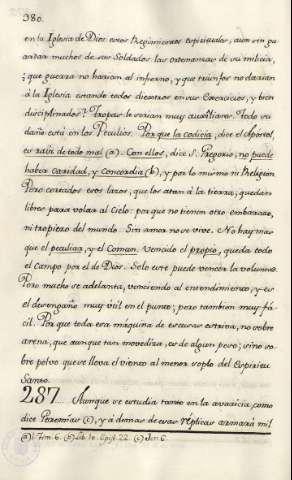 380.
en la Iglesia de Dios estos Regimientos Espirituales, aun sin gu-
ardar muchos de sus Soldados las ordenanzas de su milicia,
¿que guerra no harian al infierno, y que triunfos no darian
á la Iglesia estando todos diestros en sus Exercicios, y bien
disciplinados? Tropas le serian muy auxiliares. Todo su
daño está en los Peculios. Porque la codicia, dice el Apostol,
es raiz de todo mal (a). Con ellos, dice S. Gregorio, no puede
haber caridad, y concordia (b), y por lo mismo ni Religion
Pero cortados esos lazos, que los atan á la tierra, quedan
libres para volar al Cielo: porque no tienen otro embarazo,
ni tropiezo del mundo. Sin amor no se vive. No hay mas
que el peculiar, y el Comun. Vencido el propio, queda todo
el Campo por el de Dios. Solo este puede vencer la voluntad.
Pero mucho se adelanta, venciendo al entendimiento, y es
el desengaño muy útil en el punto; pero tambien muy fá-
cil. Porque toda esa máquina de escusas estriva, no sobre
arena, que aunque tan movediza, es de algun peso; sino so-
bre polvo que se lleva el viento al menor soplo del Espiritu
Santo.
287. Aunque se estudia tanto en la avaricia, como
dice Jeremías (c), y á demas de esas réplicas armará mil
(a) 1. Tim. 6. (b) Lib. 10. Epist. 22. (c) Jer. 6.